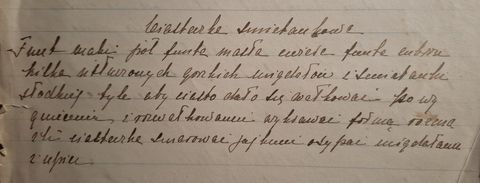 Ciasteczka śmietankowe
Funt mąki pół funta masła ćwierć funta cukru
kilka utłuczonych gorzkich migdałów i śmietanki
słodkiej tyle aby ciasto dało się wałkować po wy
gnieceniu i rozwałkowaniu wykrawać formą
ciasteczka smarować jajkiem osypać migdałami
i upiec